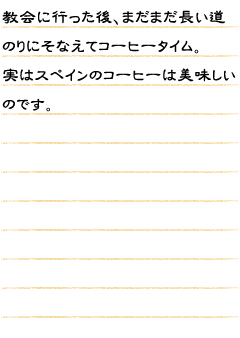 教会に行った後、まだまだ長い道
のりにそなえてコーヒータイム。
実はスペインのコーヒーは美味しい
のです。